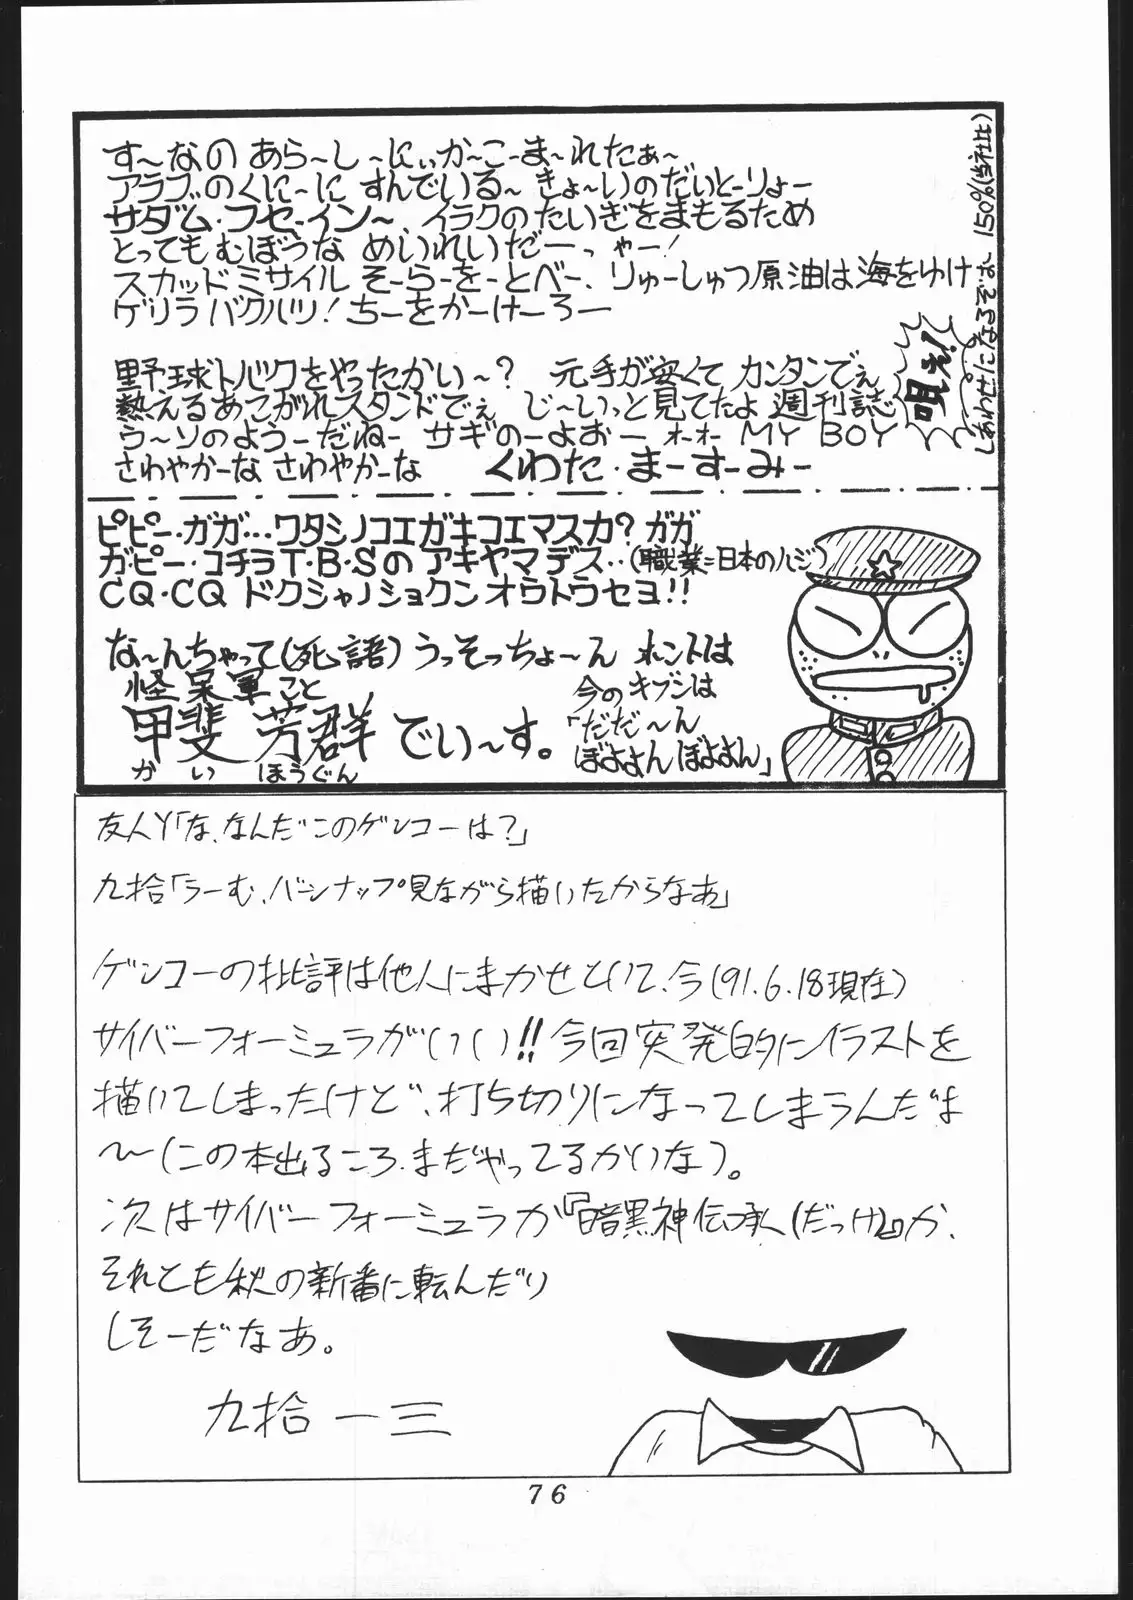 す〜なの あら〜し〜にぃか〜こーま〜れたぁ〜
アラブのくに〜に すんでいる〜 きょ〜いのだいとーりょー
サダム・フセ-イン〜 イラクのたいぎをまもるため
とってもむぼうな めいれいだーっゃー!
スカッドミサイル そーらーをーとべー、りゅーしゅつ原油は海をゆけ
ゲリラバクハツ! ちーをかーけーろー
野球トバクをやったかい〜? 元手が安くて カンタンでぇ
熱えるあこがれスタンドでぇ じ〜いっと見てたよ 週刊誌
う〜ソのようーだねー サギのーよおー ォーォー MY BOY
さわやかーな さわやかーな くわた・まーすーみー
唄え!
しあわせになるぞぉ〜 150%(当社比)
ピピー・ガガ…ワタシノコエガキコエマスカ? ガガ
ガ・ピー・コチラT・B・Sの アキヤマデス‥(職業=日本のハジ)
CQ・CQ ドクシャノショクンオウトウセヨ!!
な〜んちゃって(死語) うっそっちょ〜ん ホントは
怪呆軍こと
甲斐 芳群でい〜す。
か い ほうぐん
今のキブンは
「だだ〜ん
ぼよよん ぼよよん」
友人Y「な、なんだこのゲンコーは?」
九拾「うーむ、バーンナップ見ながら描いたからなあ」
ゲンコーの批評は他人にまかせといて、今(91.6.18現在)
サイバーフォーミュラがいい!! 今回突発的にイラストを
描いてしまったけど、打ち切りになってしまうんだよ
〜(この本出るころ、まだやってるかいな)。
次はサイバーフォーミュラか『暗黒神伝承(だっけ)』か、
それとも秋の新番に転んだり
しそーだなあ。
九拾一三
76